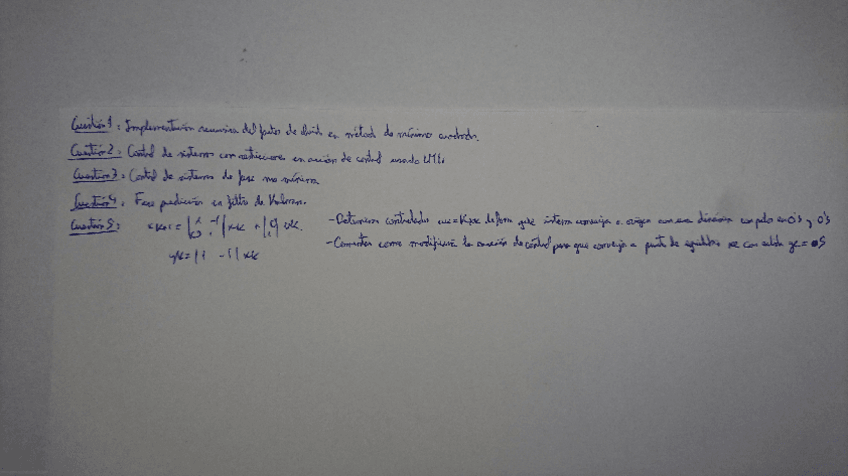 Cuestión 1: Implementación recursiva del factor de olvido en método de mínimo cuadrado.
Cuestión 2: Control de sistemas con restricciones en acción de control usando LMIs
Cuestión 3: Control de sistemas de fase no mínima
Cuestión 4: Fase predicción en filtro de Kalman.
Cuestión 5: xk+1 = xk + uk. - Determina controlador uk = Kxk de forma que sistema converja a origen con una dinámica con polos en 0's y 0's
yk = |1 -1| xk - Comentar como modificaría la acción de control para que converja a punto de equilibrio xe con salida